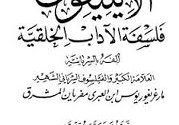 الايثيقون
فلسفة الآداب الخلقية
ألفه بالسريانية
العلامة الكبير والفيلسوف السرياني الشهير
مار غريغوريوس يوحنا ابن العبري مفريان المشرق